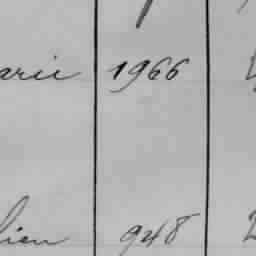 arie 1966
lien 948